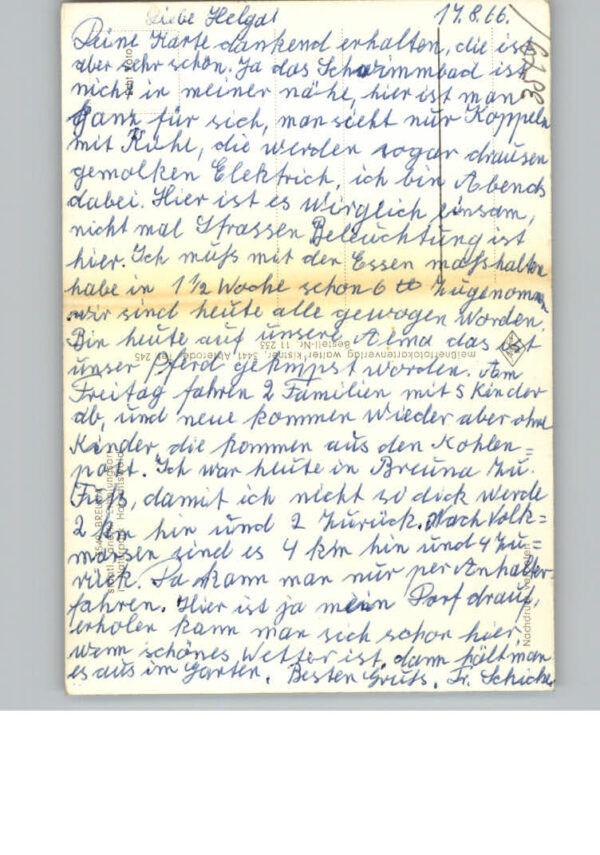 Liebe Helga! 17.8.66.
Deine Karte dankend erhalten, die ist
aber sehr schön. Ja das Schwimmbad ist
nicht in meiner nähe, hier ist man
Ganz für sich, man sieht nur Koppeln
mit Kühe, die werden sogar drausen
gemolken Elektrich, ich bin Abends
dabei. Hier ist es wirglich einsam,
nicht mal Strassen Beleuchtung ist
hier. Ich muß mit den Essen maßhalten
habe in 1 1/2 Woche schon 6 tt zugenomen
wir sind heute alle gewogen worden.
Bin heute auf unsere Alma das ist
unser Pferd geknipst worden. Am
Freitag fahren 2 Familien mit 5 Kinder
ab, und neue kommen wieder aber ohne
Kinder, die kommen aus den Kohlen=
pott. Ich war heute in Breuna zu
Fuß, damit ich nicht so dick werde
2 km hin und 2 zurück. Nach Volk=
marsen sind es 4 km hin und 4 zu=
rück. Da kann man nur per Anhalter
fahren. Hier ist ja mein Dorf drauf,
erholen kann man sich schon hier,
wenn schönes Wetter ist, dann hält man
es aus im Garten. Besten Gruß. Fr. Schicke
meißner-fotokartenverlag walter kistner, 3441 Abterode Tel. 245
Bestell-Nr. 11 253
Nachdruck verboten